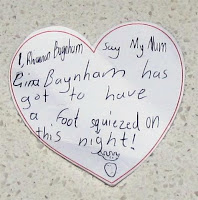 I, Rhiannon Baynham say My Mum
Gina Baynham has
got to have
a foot squiezed on
this night!